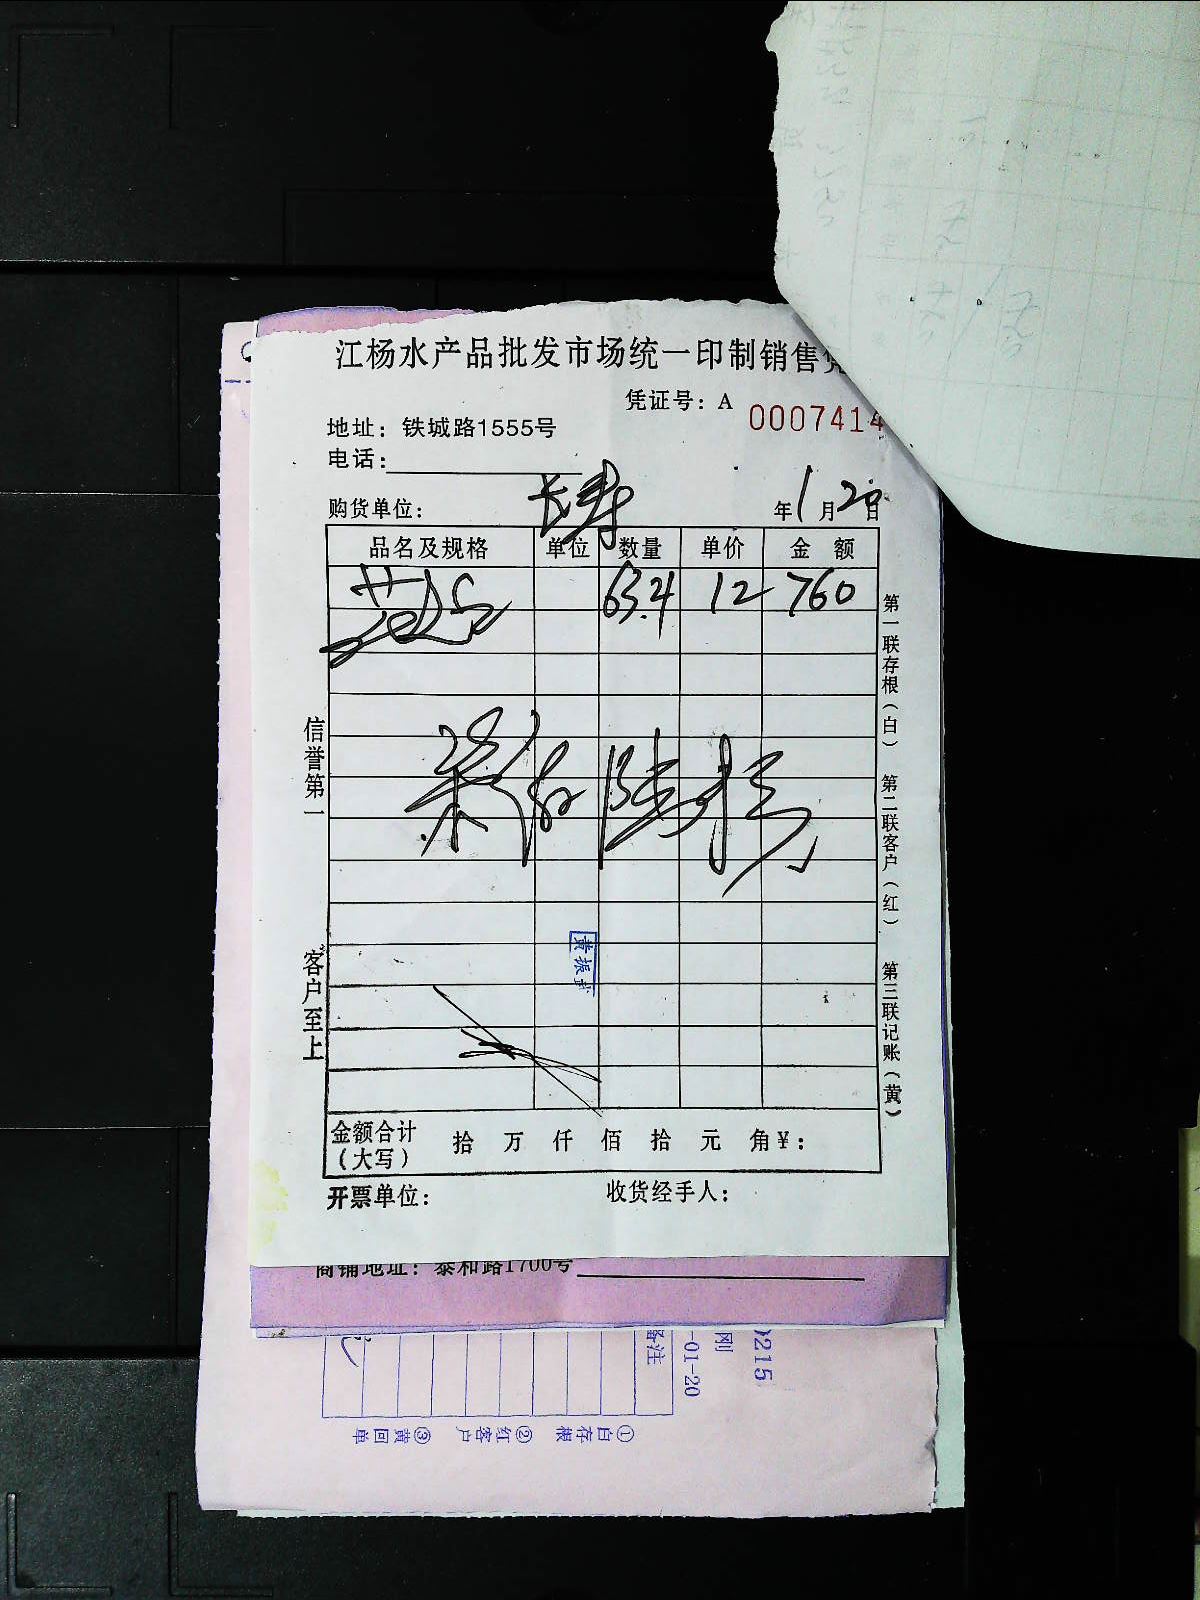 江杨水产品批发市场统一印制销售凭
凭证号：A 0007414
地址：铁城路1555号
电话：
购货单位： 长寿 年1月20日
品名及规格 单位 数量 单价 金 额
63.4 12 760
柒佰陆拾
黄振
金额合计（大写） 拾 万 仟 佰 拾 元 角￥：
开票单位： 收货经手人：
信誉第一 客户至上
第一联存根（白） 第二联客户（红） 第三联记账（黄）
商铺地址：泰和路1700号
215
刚
-01-20
备注
①白存根 ②红客户 ③黄回单